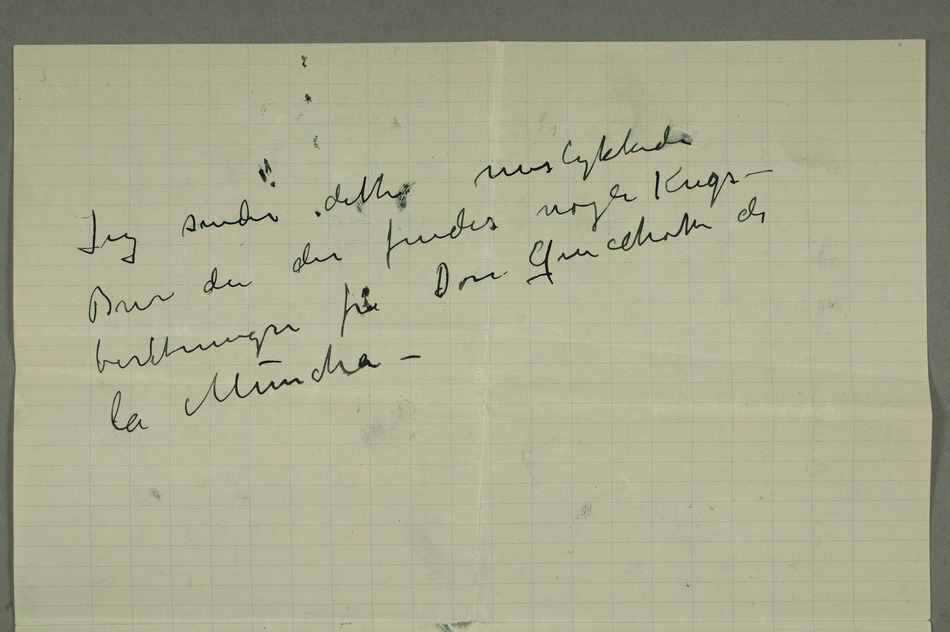 Jeg sender dette mislykkede
Brev da der findes nogle Krigs-
beretninger fra Don Quichotte de
la Mancha –